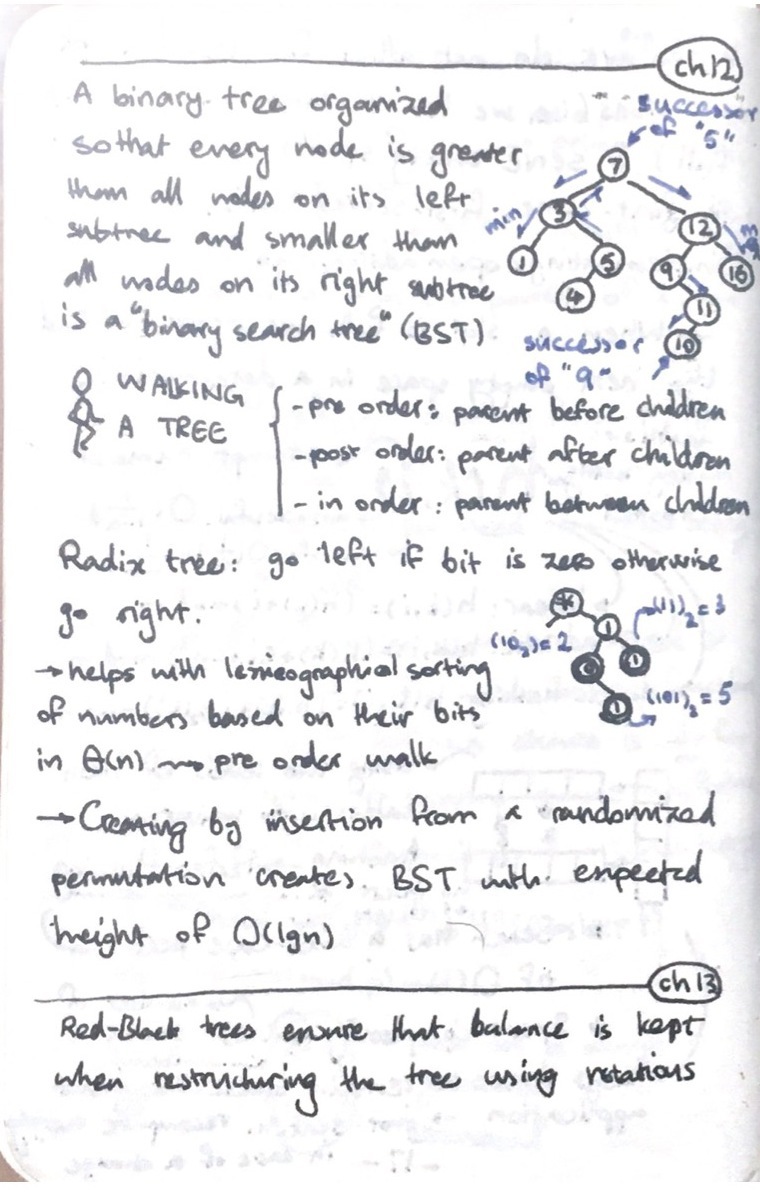 ch12
A binary tree organized
so that every node is greater
than all nodes on its left
subtree and smaller than
all nodes on its right subtree
is a "binary search tree" (BST)
successor
of "5"
7
3
12
min
1
5
9
4
11
10
successor
of "9"
WALKING
A TREE
- pre order: parent before children
- post order: parent after children
- in order: parent between children
Radix tree: go left if bit is zero otherwise
go right.
*
1
(11)₂ = 3
(10₂) = 2
0
1
1
(101)₂ = 5
→ helps with lexicographical sorting
of numbers based on their bits
in Θ(n) → pre order walk
→ Creating by insertion from a randomized
permutation creates BST with expected
height of O(lgn)
ch 13
Red-Black trees ensure that balance is kept
when restructuring the tree using rotations